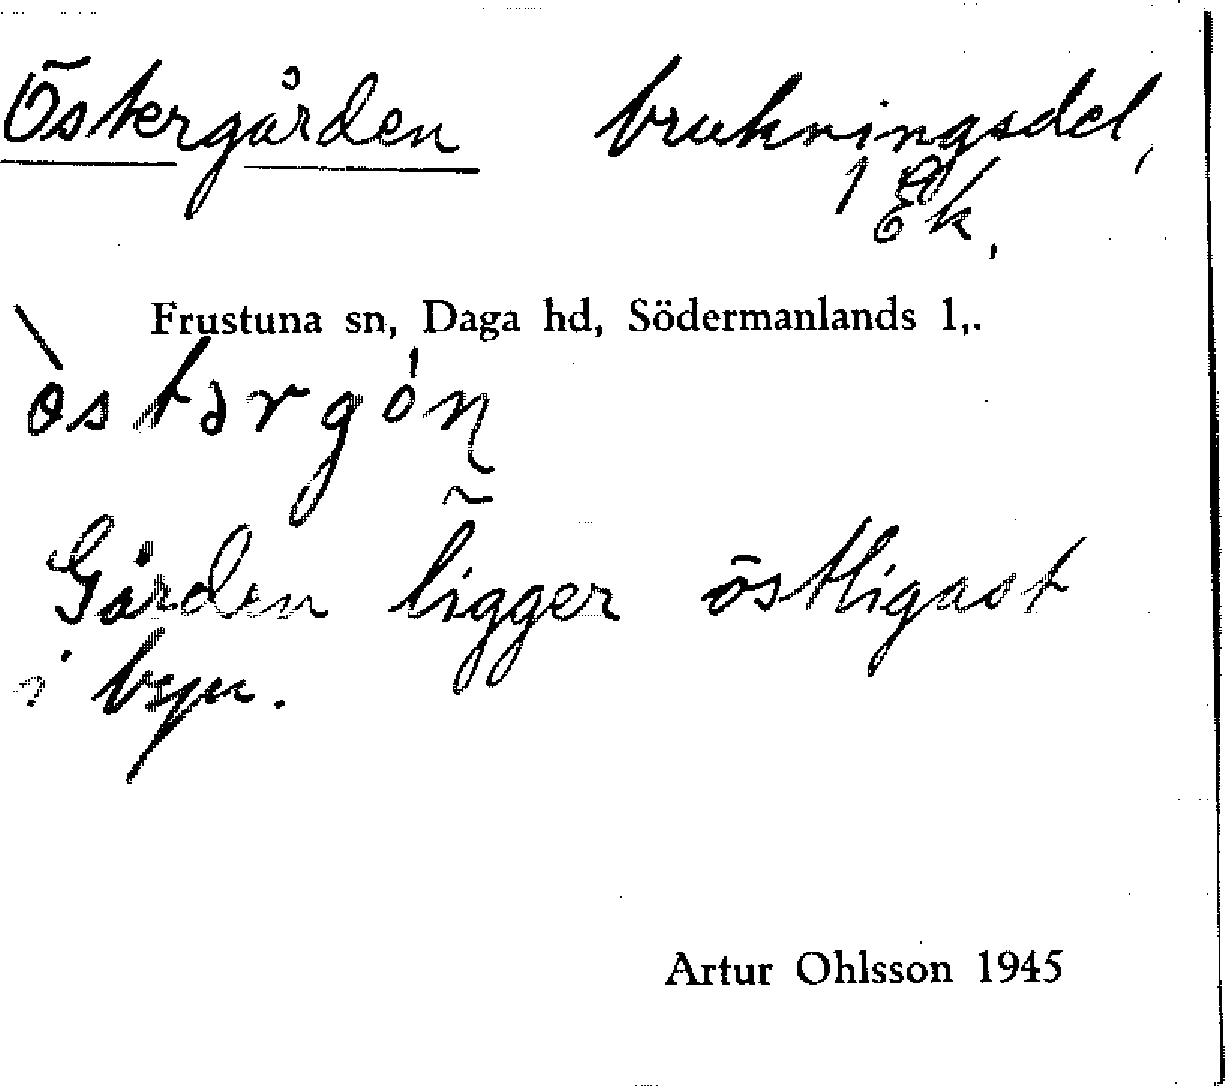 Östergården brukningsdel,
1 Ek,
Frustuna sn, Daga hd, Södermanlands l,.
òstərgón̥
Gården ligger östligast
i byn.
Artur Ohlsson 1945